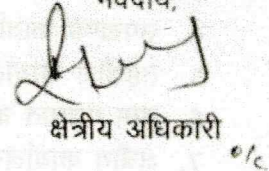 भवदीय,
क्षेत्रीय अधिकारी
o/c